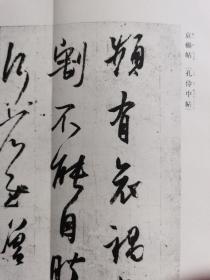 哀禍帖 孔侍中帖
頻有哀禍
割不能自勝